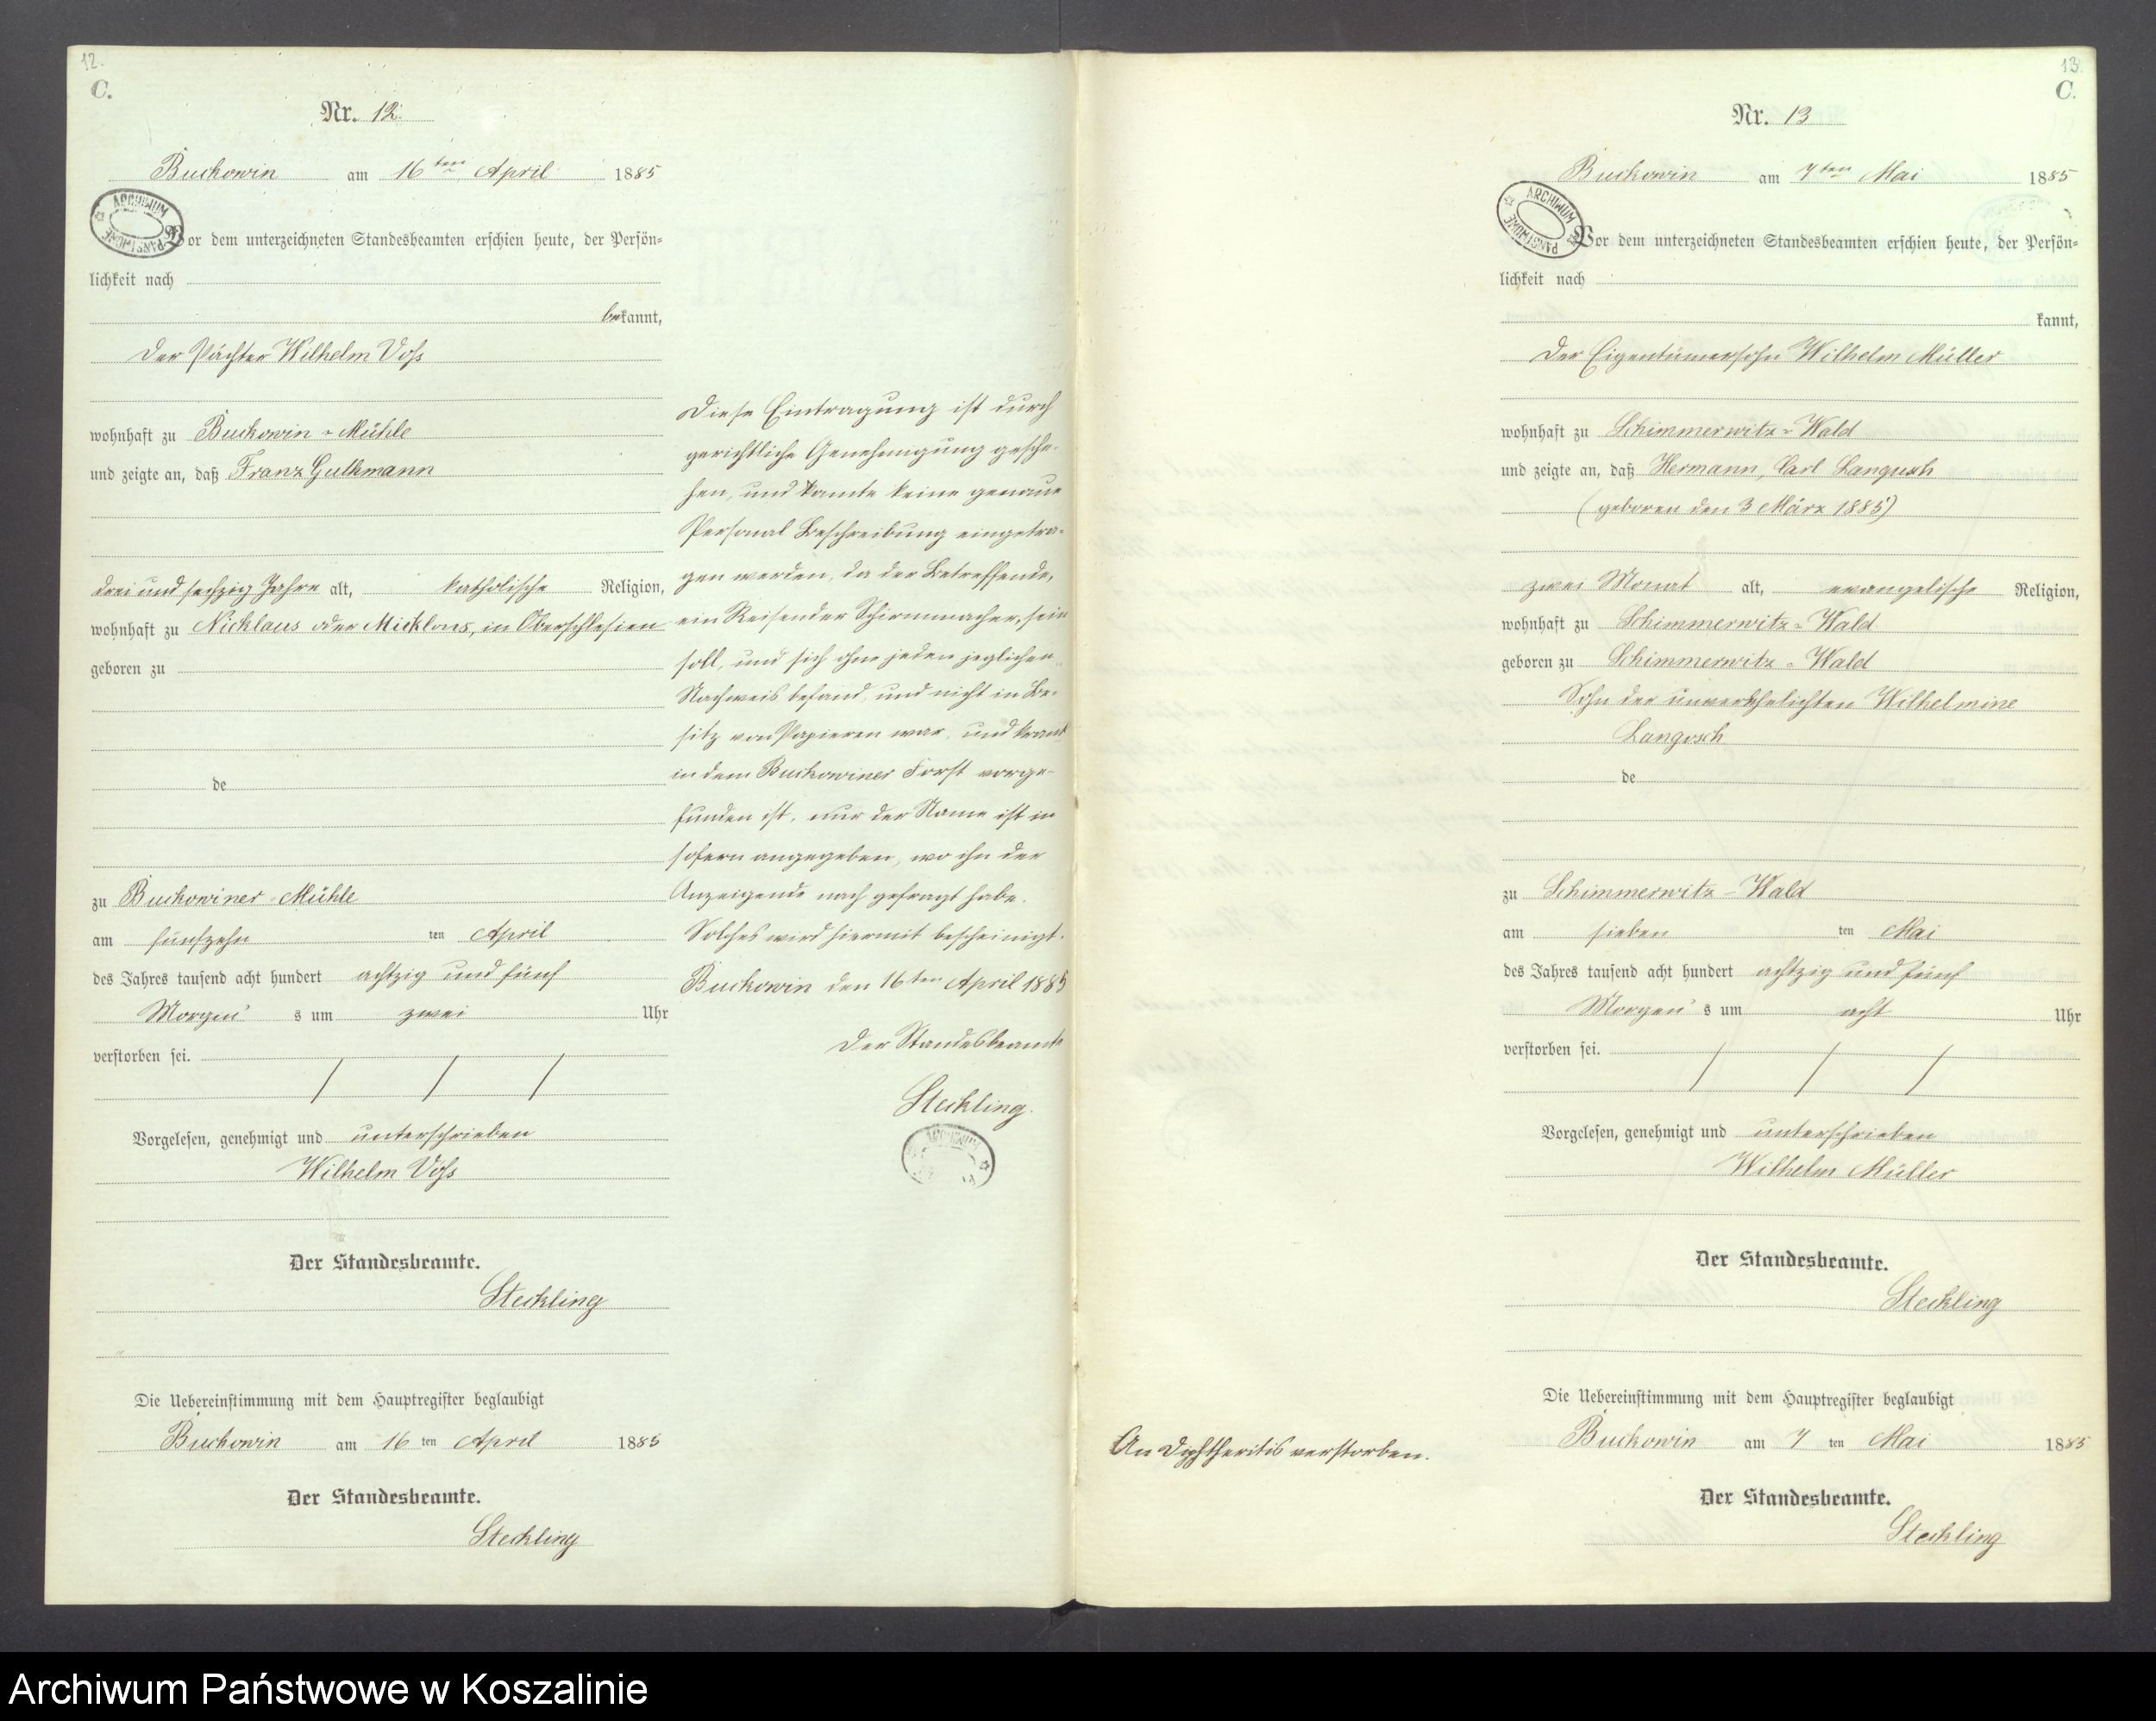 12.
C.
Nr. 12.
Buckowin am 16ten April 1885
ARCHIWUM PAŃSTWOWE
Vor dem unterzeichneten Standesbeamten erschien heute, der Persön=
lichkeit nach
bekannt,
der Pächter Wilhelm Voss
wohnhaft zu Buckowin - Mühle
und zeigte an, daß Franz Gulkmann
drei und sechzig Jahre alt, katholische Religion,
wohnhaft zu Nicklaus oder Micklous, in Oberschlesien
geboren zu
de
zu Buckowiner - Mühle
am fünfzehn ten April
des Jahres tausend acht hundert achtzig und fünf
Morgen s um zwei Uhr
verstorben sei.
Vorgelesen, genehmigt und unterschrieben
Wilhelm Voss
Der Standesbeamte.
Steckling
Die Uebereinstimmung mit dem Hauptregister beglaubigt
Buckowin am 16 ten April 1885
Der Standesbeamte.
Steckling
Diese Eintragung ist durch
gerichtliche Genehmigung gesche-
hen, und konnte keine genaue
Personal Beschreibung eingetra-
gen werden, da der Betreffende,
ein Reisender Schirmmacher, sein
soll, und sich ohne jeden jeglichen
Nachweis befand, und nicht in Be-
sitz von Papieren war, und krank
in dem Buckowiner Forst vorge-
funden ist, nur der Name ist in
sofern angegeben, wo ihn der
Anzeigende nach gefragt habe.
Solches wird hiermit bescheinigt.
Buckowin den 16ten April 1885
Der Standesbeamte
Steckling.
ARCHIWUM
13
C.
Nr. 13
Buckowin am 7ten Mai 1885
ARCHIWUM PAŃSTWOWE
Vor dem unterzeichneten Standesbeamten erschien heute, der Persön=
lichkeit nach
kannt,
der Eigentümersohn Wilhelm Müller
wohnhaft zu Schimmerwitz - Wald
und zeigte an, daß Hermann, Carl Langosch
(geboren den 3 März 1885)
zwei Monat alt, evangelische Religion,
wohnhaft zu Schimmerwitz - Wald.
geboren zu Schimmerwitz - Wald
Sohn der unverehelichten Wilhelmine
Langosch
de
zu Schimmerwitz - Wald
am sieben ten Mai
des Jahres tausend acht hundert achtzig und fünf
Morgen s um acht Uhr
verstorben sei.
Vorgelesen, genehmigt und unterschrieben
Wilhelm Müller
Der Standesbeamte.
Steckling
Die Uebereinstimmung mit dem Hauptregister beglaubigt
Buckowin am 7 ten Mai 1885
Der Standesbeamte.
Steckling
An Diphtheritis verstorben.
Archiwum Państwowe w Koszalinie